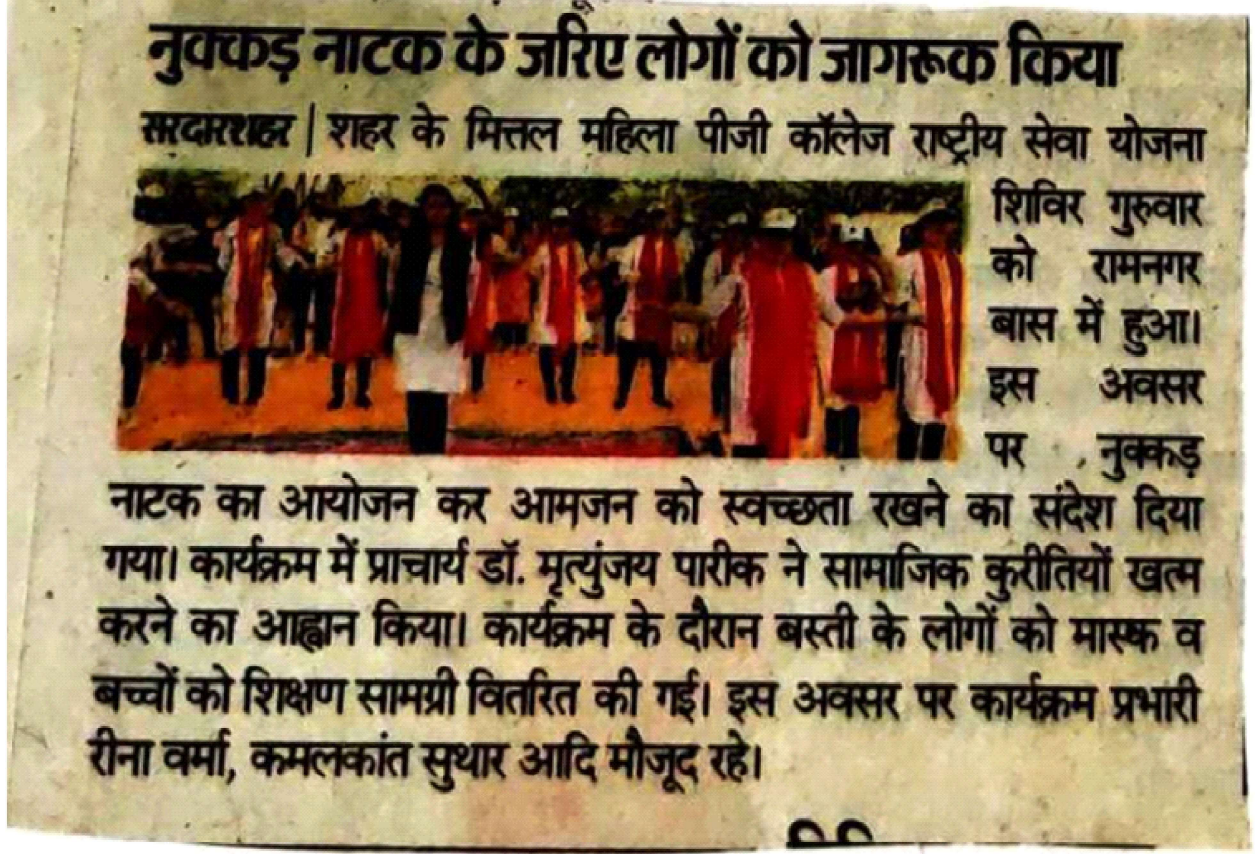 नुक्कड़ नाटक के जरिए लोगों को जागरूक किया
सरदारशहर | शहर के मित्तल महिला पीजी कॉलेज राष्ट्रीय सेवा योजना
शिविर गुरुवार
को रामनगर
बास में हुआ।
इस अवसर
पर नुक्कड़
नाटक का आयोजन कर आमजन को स्वच्छता रखने का संदेश दिया
गया। कार्यक्रम में प्राचार्य डॉ. मृत्युंजय पारीक ने सामाजिक कुरीतियों खत्म
करने का आह्वान किया। कार्यक्रम के दौरान बस्ती के लोगों को मास्क व
बच्चों को शिक्षण सामग्री वितरित की गई। इस अवसर पर कार्यक्रम प्रभारी
रीना वर्मा, कमलकांत सुथार आदि मौजूद रहे।